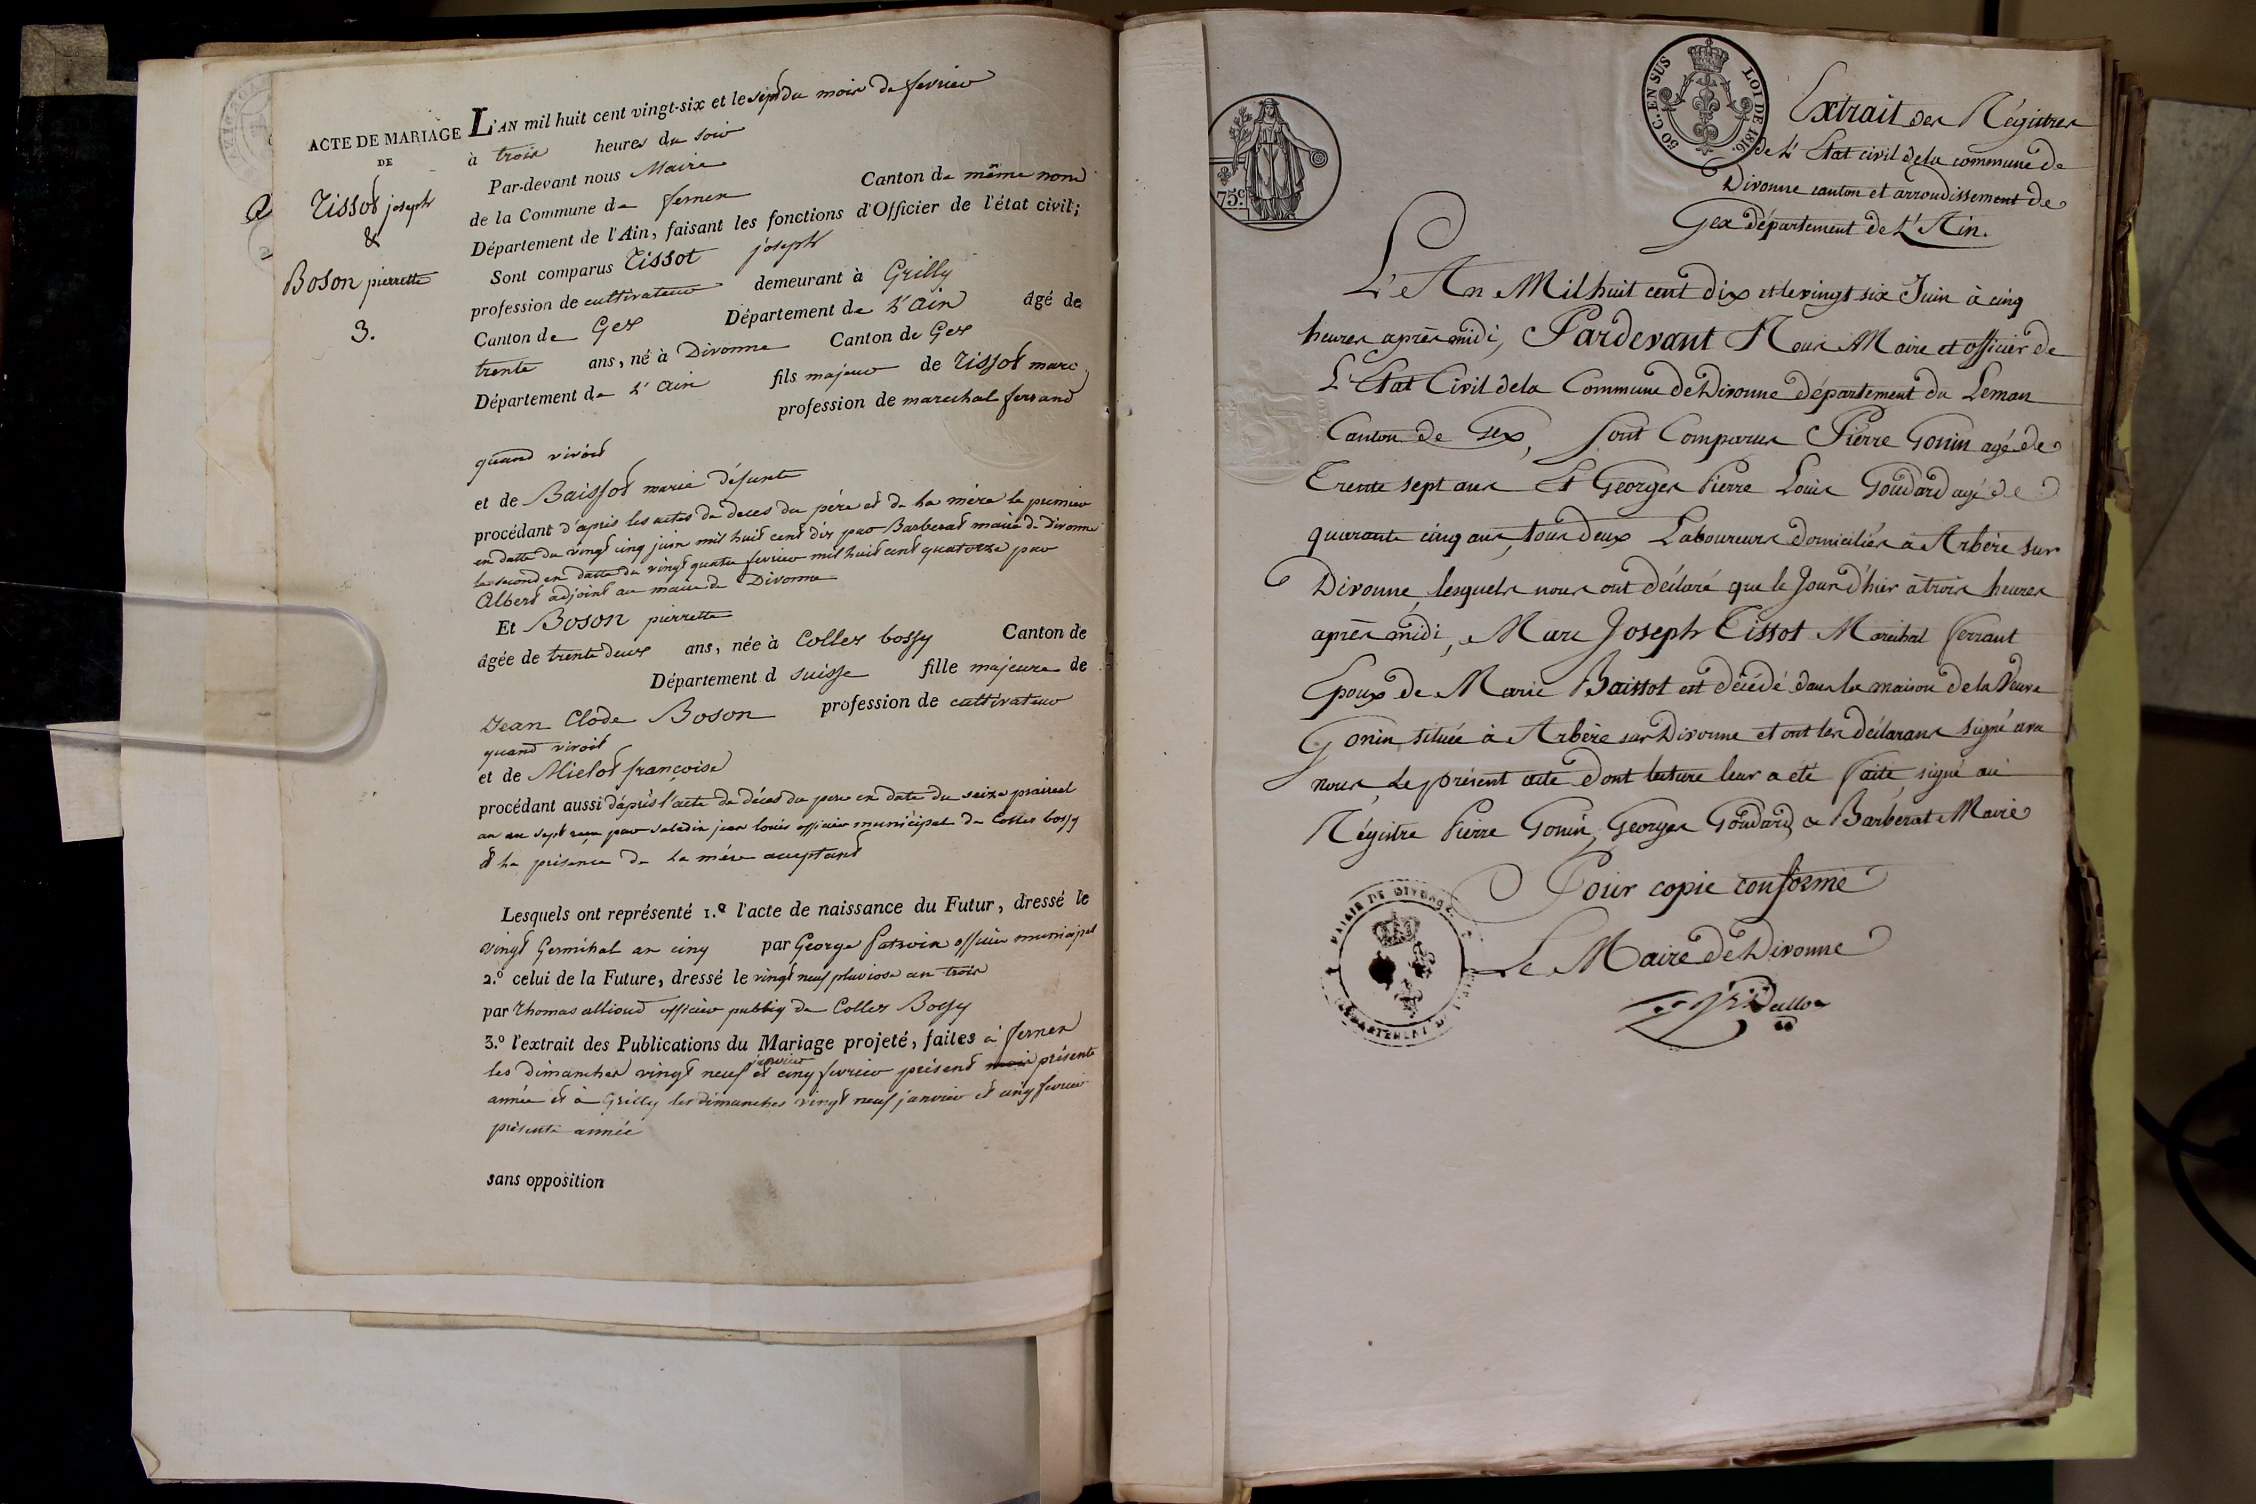 ACTE DE MARIAGE
DE
Tissot joseph
&
Boson pierrette
3.
L'AN mil huit cent vingt-six et le sept du mois de fevrier
à trois heures du soir
Par-devant nous Maire
de la Commune de ferney Canton de même nom
Département de l'Ain, faisant les fonctions d'Officier de l'état civil;
Sont comparus Tissot joseph
profession de cultivateur demeurant à Grilly
Canton de Gex Département de L'ain âgé de
trente ans, né à Divonne Canton de Gex
Département de L'ain fils majeur de Tissot marc
profession de marechal ferrand
quand vivoit
et de Baissot marie défunte
procédant d'après les actes de deces du père et de la mère le premier
en datte du vingt cinq juin mil huit cent dix par Barberat maire de Divonne
le second en datte du vingt quatre fevrier mil huit cent quatorze par
Albert adjoint au maire de Divonne
Et Boson pierrette
âgée de trente deux ans, née à Collex bossy Canton de
Département d suisse fille majeure de
Jean Clode Boson profession de cultivateur
quand vivoit
et de Mielot françoise
procédant aussi d'après l'acte de déces du pere en date du seize prairial
an sept reçu par saladin jean louis officier municipal de Collex bossy
et la présence de la mére acceptant
Lesquels ont représenté 1.º l'acte de naissance du Futur, dressé le
vingt Germinal an cinq par George officier municipal
2.º celui de la Future, dressé le vingt neuf pluviose an trois
par Thomas allioud officier publiq de Collex Bossy
3.º l'extrait des Publications du Mariage projeté, faites à ferney
janvier
les dimanches vingt neuf et cinq fevrier présent mois présente
année et à Grilly les dimanches vingt neuf janvier et cinq fevrier
présente année
sans opposition
50 C. EN SUS
LOI DE 1816.
75 c.
Extrait des Régistres
de L'Etat civil de la commune de
Divonne canton et arrondissement de
Gex département de L'Ain.
L'An Mil huit cent dix et le vingt six Juin à cinq
heures après midi, Pardevant Nous Maire et officier de
L'Etat Civil de la Commune de Divonne département du Leman
Canton de Gex, sont Comparus Pierre Gonin agé de
Trente sept ans Et Georges Pierre Louis Goudard agé de
quarante cinq ans, tous deux Laboureurs domiciliés à Arbère sur
Divonne, lesquels nous ont déclaré que le Jour d'hier à trois heures
après midi, Marc Joseph Tissot Maréchal ferraut
Epoux de Marie Baissot est décédé dans la maison de la Veuve
Gonin située à Arbère sur Divonne et ont les déclarans signé avec
nous, le présent acte dont lecture leur a été faite, signé au
Régistre Pierre Gonin, Georges Goudard, & Barberat Maire
Pour copie conforme
Le Maire de Divonne
MAIRIE DE DIVONNE
DÉPARTEMENT DE L'AIN